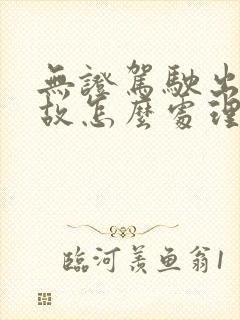 無證駕駛出
故怎麼處理
臨河羨魚翁1